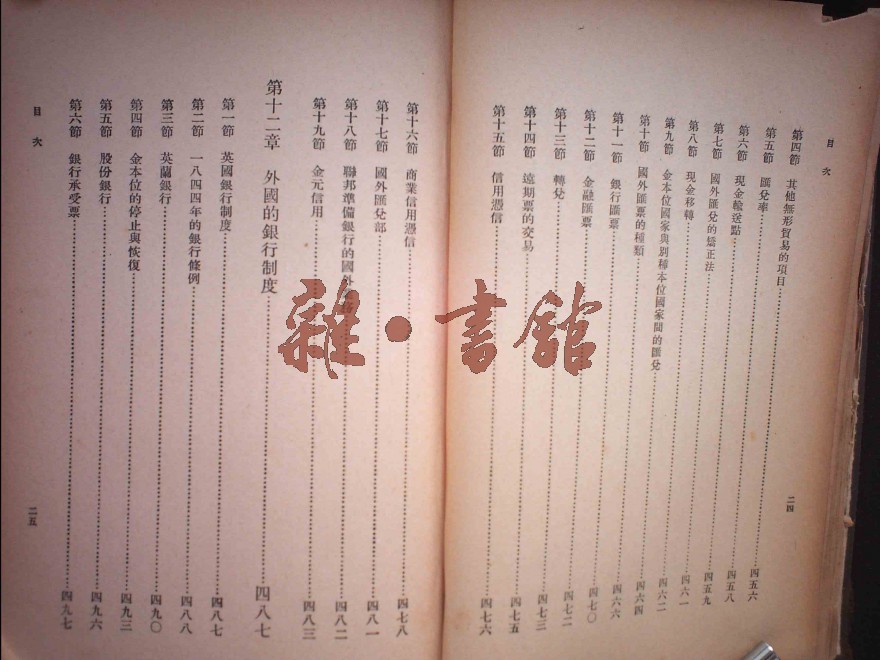 目次
第四節 其他無形貿易的項目……四五六
第五節 匯兌率……四五八
第六節 現金輸送點……四五九
第七節 國外匯兌的矯正法……四六一
第八節 現金移轉……四六二
第九節 金本位國家與別種本位國家間的匯兌……四六四
第十節 國外匯票的種類……四六六
第十一節 銀行匯票……四七〇
第十二節 金融匯票……四七二
第十三節 轉兌……四七三
第十四節 遠期票的交易……四七五
第十五節 信用憑信……四七六
二四
第十六節 商業信用憑信……四七八
第十七節 國外匯兌部……四八一
第十八節 聯邦準備銀行的國外……四八二
第十九節 金元信用……四八三
第十二章 外國的銀行制度……四八七
第一節 英國銀行制度……四八七
第二節 一八四四年的銀行條例……四八八
第三節 英蘭銀行……四九〇
第四節 金本位的停止與恢復……四九三
第五節 股份銀行……四九六
第六節 銀行承受票……四九七
目次
二五
雜·書館